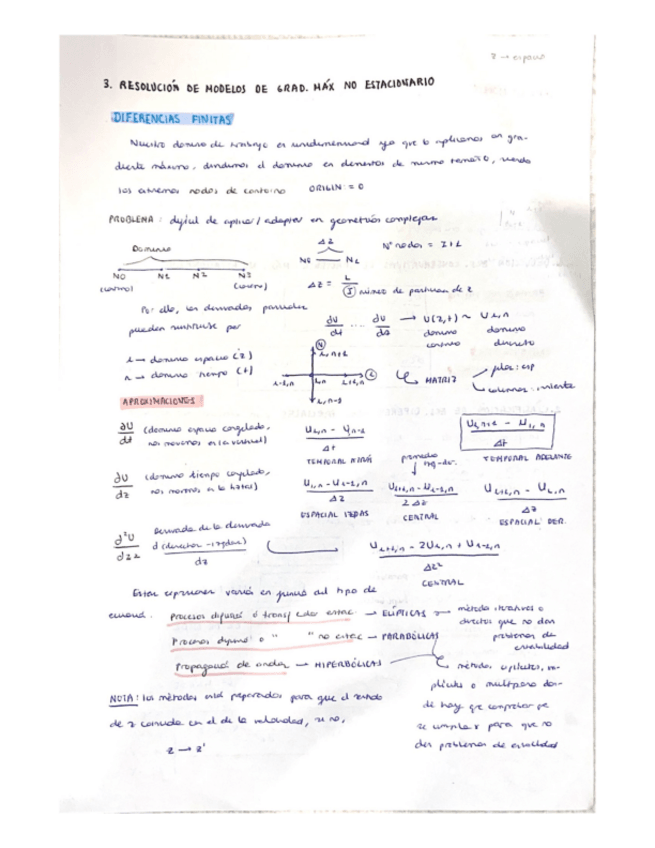 z → espacio
3. RESOLUCIÓN DE MODELOS DE GRAD. MÁX NO ESTACIONARIO
DIFERENCIAS FINITAS
Nuestro dominio de trabajo es unidimensional ya que lo aplicamos en gra-
diente máximo, dividimos el dominio en elementos de mismo tamaño, siendo
los extremos nodos de contorno ORIGIN := 0
PROBLEMA: difícil de aplicar/adaptar en geometrías complejas
Dominio
N0 N1 N2 N3
(contorno) (contorno)
ΔZ
N0 — N1
Nº nodos = I+1
ΔZ = L / I número de particiones de z
Por ello, las derivadas parciales
pueden sustituirse por
dU/dt ... dU/dz → U(z,t) ~ Ui,n
dominio continuo dominio discreto
i → dominio espacio (z)
n → dominio tiempo (t)
i,n+1
i-1,n i,n i+1,n
i,n-1
MATRIZ
filas: esp
columnas:
APROXIMACIONES
dU/dt (dominio espacio congelado,
nos movemos en la vertical)
Ui,n - Ui,n-1 / Δt
TEMPORAL ATRÁS
Ui,n+1 - Ui,n / Δt
TEMPORAL ADELANTE
dU/dz (dominio tiempo congelado,
nos movemos en la horiz)
Ui,n - Ui-1,n / ΔZ
ESPACIAL IZDAS
promedio
izq-der.
Ui+1,n - Ui-1,n / 2ΔZ
CENTRAL
Ui+1,n - Ui,n / ΔZ
ESPACIAL DER.
d²U/dz² Derivada de la derivada
d (derecha - izqdas) / dz
Ui+1,n - 2Ui,n + Ui-1,n / ΔZ²
CENTRAL
Estas expresiones varían en función del tipo de
ecuació.
Procesos difusió ó transf calor estac → ELÍPTICAS → métodos iterativos o
directos que no dan
problemas de
estabilidad
Procesos difusió o " " no estac → PARABÓLICAS
Propagació de ondas → HIPERBÓLICAS
métodos explícitos, im-
plícitos o multipaso don-
de hay que comprobar que
se cumplen para que no
den problemas de estabilidad
NOTA: los métodos está preparados para que el sentido
de z coincida con el de la velocidad, si no,
z → z'